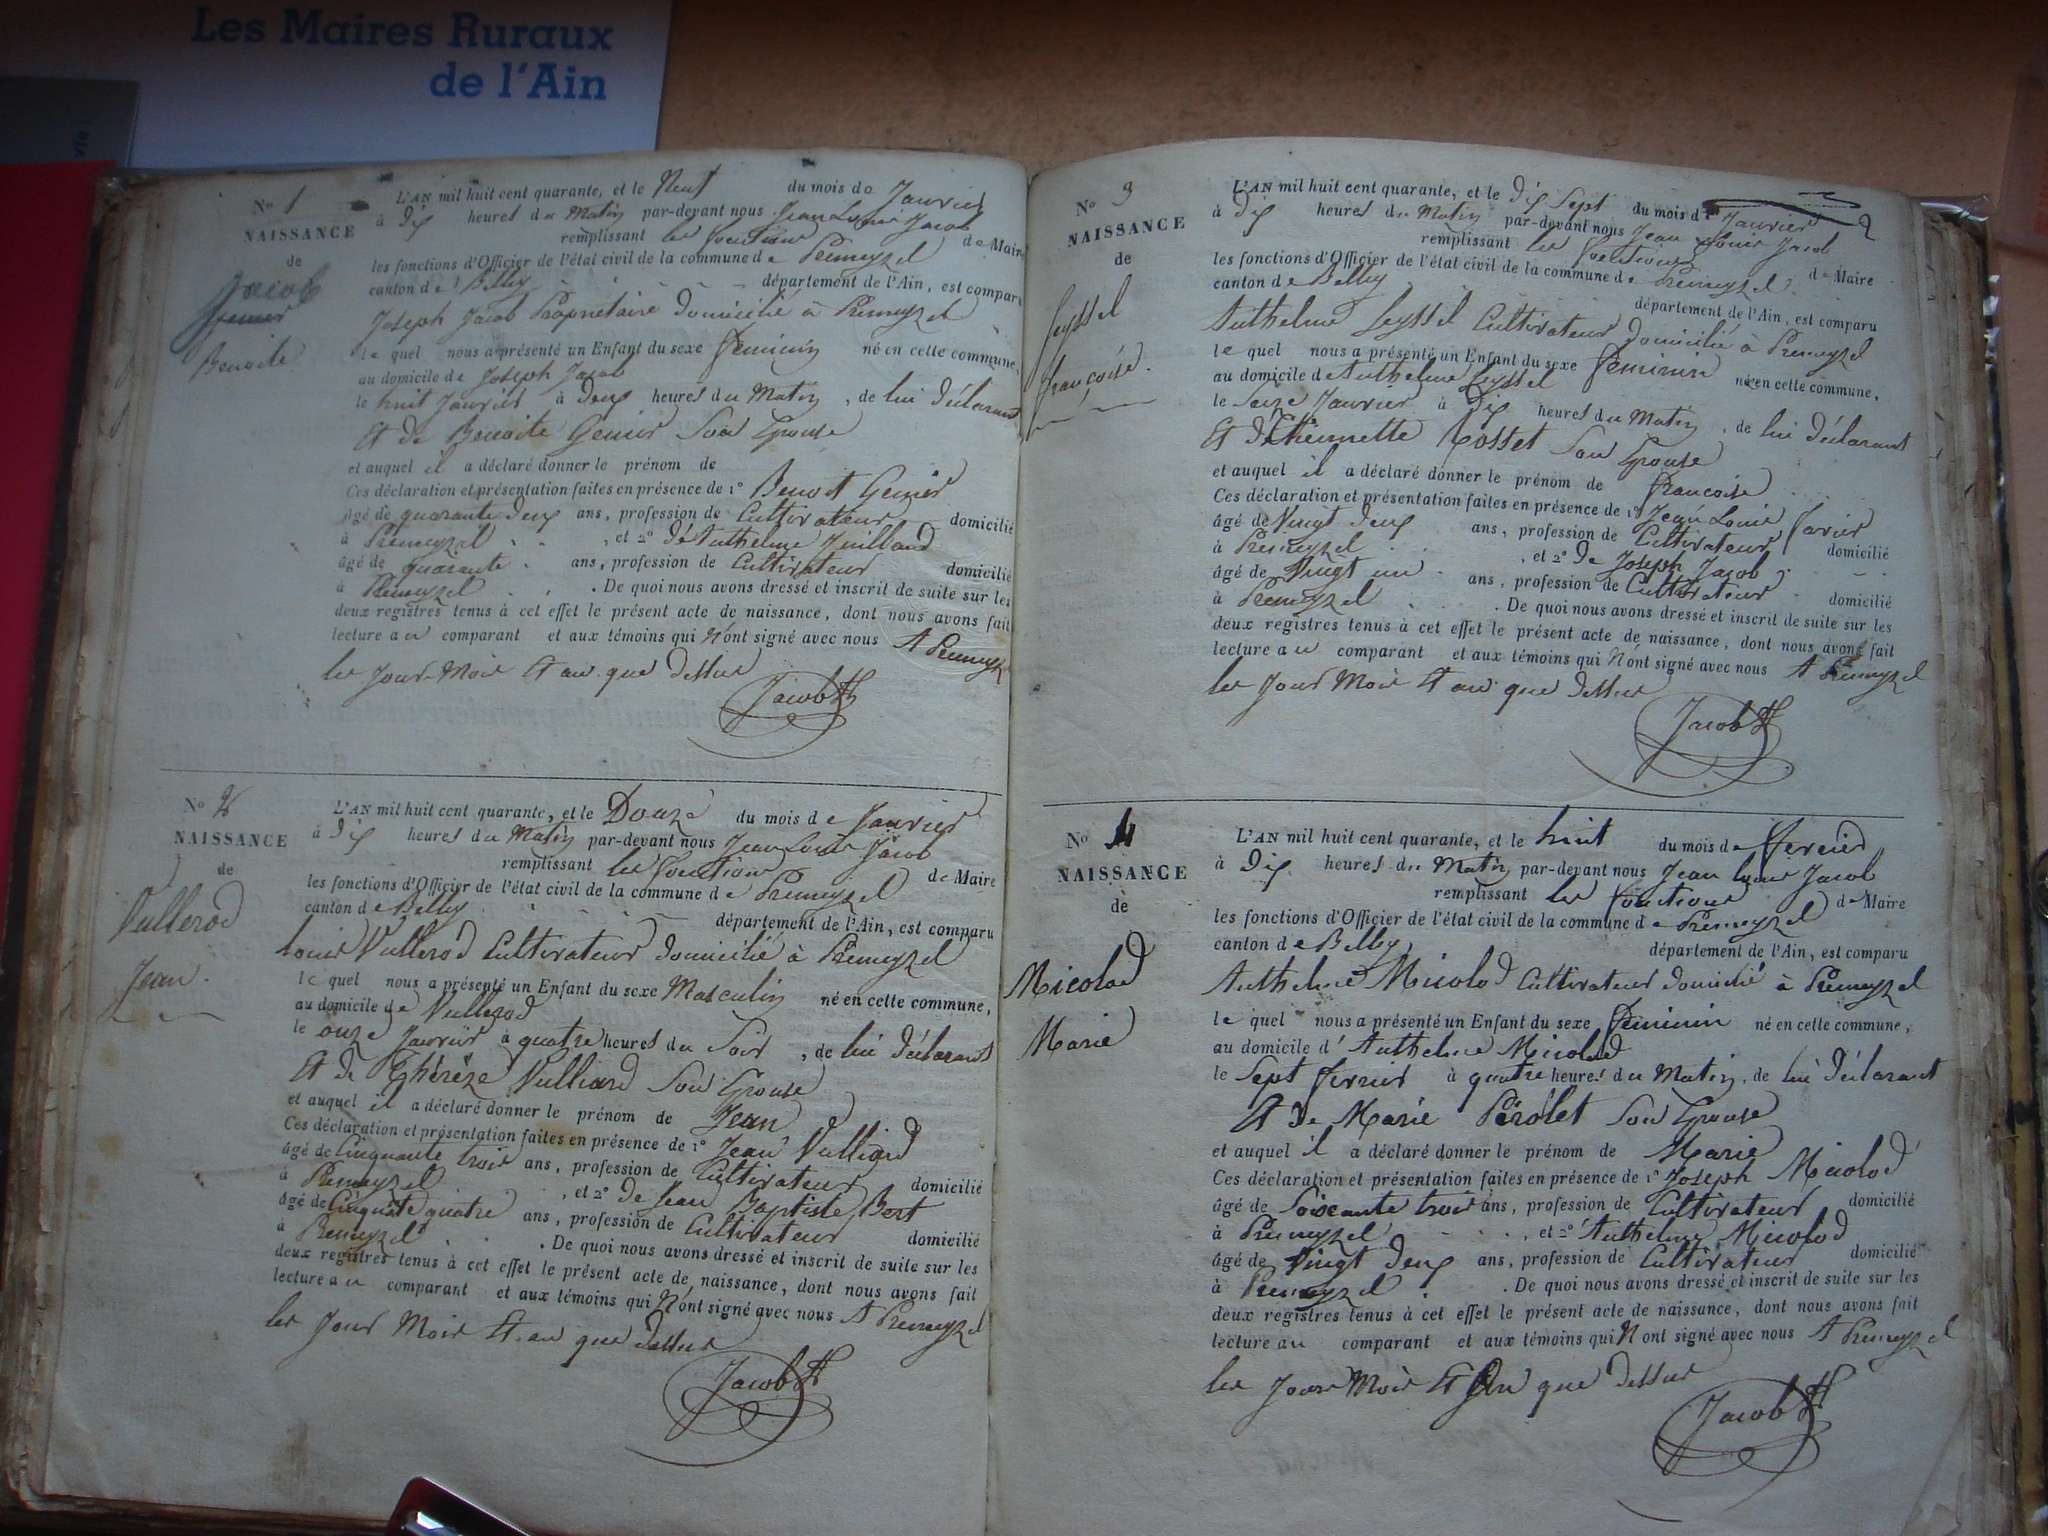 Les Maires Ruraux
de l'Ain
No 1
NAISSANCE
de
Jacob
Benoite
L'AN mil huit cent quarante, et le Neuf du mois de Janvier
à Dix heures du Matin par-devant nous Jean Louis Jacob
remplissant les fonctions de Maire
les fonctions d'Officier de l'état civil de la commune de Prémeyzel
canton de Belley département de l'Ain, est comparu
Joseph Jacob Propriétaire domicilié à Prémeyzel
lequel nous a présenté un Enfant du sexe féminin né en cette commune,
au domicile de Joseph Jacob
le huit Janvier à Deux heures du Matin, de lui déclarant
Et de Benoite Genier Son Epouse
et auquel il a déclaré donner le prénom de
Ces déclaration et présentation faites en présence de 1° Benoit Genier
âgé de quarante deux ans, profession de Cultivateur domicilié
à Prémeyzel, et 2° de Anthelme Juilland
âgé de quarante ans, profession de Cultivateur domicilié
à Prémeyzel. De quoi nous avons dressé et inscrit de suite sur les
deux registres tenus à cet effet le présent acte de naissance, dont nous avons fait
lecture au comparant et aux témoins qui N'ont signé avec nous A Prémeyzel
les Jour Mois Et an que dessus
Jacob
No 2
NAISSANCE
de
Vullerod
Jean.
L'AN mil huit cent quarante, et le Douze du mois de Janvier
à Dix heures du Matin par-devant nous Jean Louis Jacob
remplissant les fonctions de Maire
les fonctions d'Officier de l'état civil de la commune de Prémeyzel
canton de Belley département de l'Ain, est comparu
Louis Vullerod Cultivateur domicilié à Prémeyzel
lequel nous a présenté un Enfant du sexe Masculin né en cette commune,
au domicile de Vullerod
le onze Janvier à quatre heures du Soir, de lui déclarant
Et de Thérèze Vulliard Son Epouse
et auquel il a déclaré donner le prénom de Jean
Ces déclaration et présentation faites en présence de 1° Jean Vulliard
âgé de Cinquante trois ans, profession de Cultivateur domicilié
à Prémeyzel, et 2° de Jean Baptiste Bert
âgé de Cinquante quatre ans, profession de Cultivateur domicilié
à Prémeyzel. De quoi nous avons dressé et inscrit de suite sur les
deux registres tenus à cet effet le présent acte de naissance, dont nous avons fait
lecture au comparant et aux témoins qui N'ont signé avec nous A Prémeyzel
les Jour Mois Et an que dessus
Jacob
2
No 3
NAISSANCE
de
Seyssel
françoise.
L'AN mil huit cent quarante, et le Dix Sept du mois de Janvier
à Dix heures du Matin par-devant nous Jean Louis Jacob
remplissant les fonctions de Maire
les fonctions d'Officier de l'état civil de la commune de Prémeyzel
canton de Belley département de l'Ain, est comparu
Anthelme Seyssel Cultivateur domicilié à Prémeyzel
lequel nous a présenté un Enfant du sexe féminin né en cette commune,
au domicile de Anthelme Seyssel
le Seize Janvier à Dix heures du Matin, de lui déclarant
Et d'Etiennette Cosset Son Epouse
et auquel il a déclaré donner le prénom de françoise
Ces déclaration et présentation faites en présence de 1° Jean Louis Javier
âgé de Vingt Deux ans, profession de Cultivateur domicilié
à Prémeyzel, et 2° de Joseph Jacob
âgé de Vingt un ans, profession de Cultivateur domicilié
à Prémeyzel. De quoi nous avons dressé et inscrit de suite sur les
deux registres tenus à cet effet le présent acte de naissance, dont nous avons fait
lecture au comparant et aux témoins qui N'ont signé avec nous A Prémeyzel
les Jour Mois Et an que dessus
Jacob
No 4
NAISSANCE
de
Micolod
Marie
L'AN mil huit cent quarante, et le huit du mois de fevrier
à Dix heures du Matin par-devant nous Jean Louis Jacob
remplissant les fonctions de Maire
les fonctions d'Officier de l'état civil de la commune de Prémeyzel
canton de Belley département de l'Ain, est comparu
Anthelme Micolod Cultivateur domicilié à Prémeyzel
lequel nous a présenté un Enfant du sexe féminin né en cette commune,
au domicile d'Anthelme Micolod
le Sept fevrier à quatre heures du Matin, de lui déclarant
Et de Marie Pérolet Son Epouse
et auquel il a déclaré donner le prénom de Marie
Ces déclaration et présentation faites en présence de 1° Joseph Micolod
âgé de Soixante trois ans, profession de Cultivateur domicilié
à Prémeyzel, et 2° Anthelme Micolod
âgé de Vingt Deux ans, profession de Cultivateur domicilié
à Prémeyzel. De quoi nous avons dressé et inscrit de suite sur les
deux registres tenus à cet effet le présent acte de naissance, dont nous avons fait
lecture au comparant et aux témoins qui N'ont signé avec nous A Prémeyzel
les Jour Mois Et An que dessus
Jacob